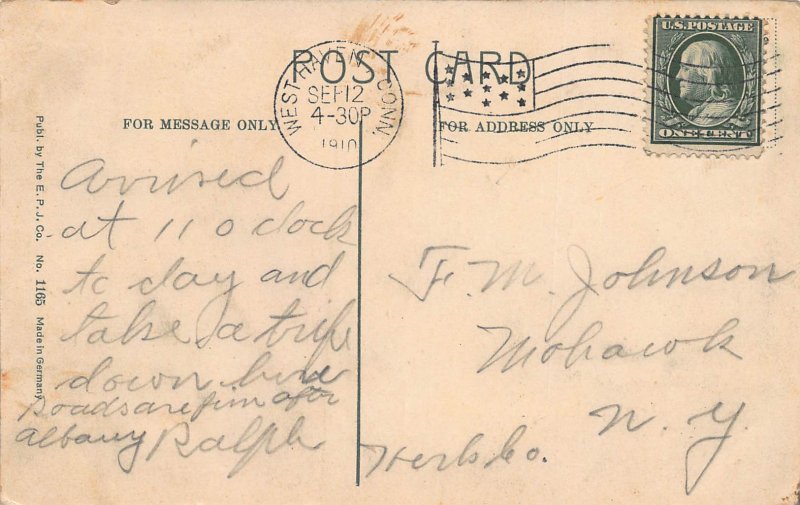 POST CARD
FOR MESSAGE ONLY
FOR ADDRESS ONLY
WEST HAVEN CONN.
SEP 12
4-30P
1910
U.S. POSTAGE
ONE CENT
Publ. by The E. P. J. Co. No. 1165 Made in Germany
Arrived
at 11 o clock
to day and
take a trip
down here
Roads are fim after
Albany Ralph
F. M. Johnson
Mohawk
N. Y.
Herk Co.